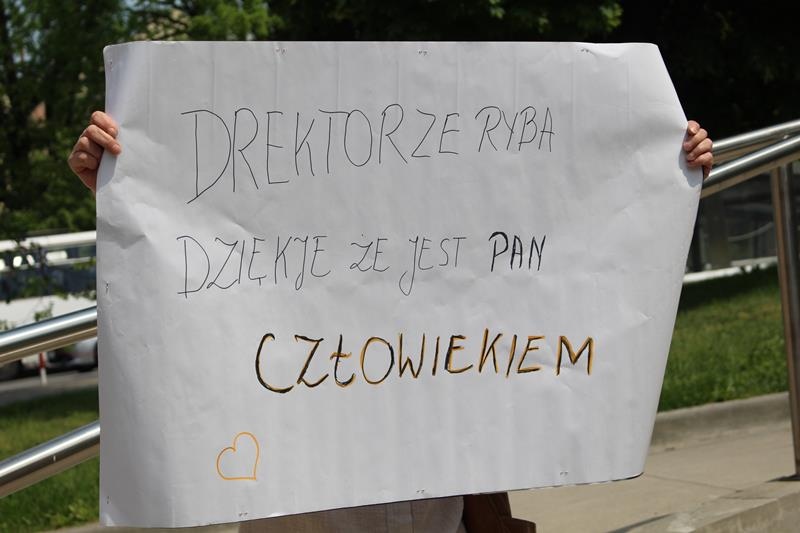 DREKTORZE RYBA
DZIĘKJE ŻE JEST PAN
CZŁOWIEKIEM